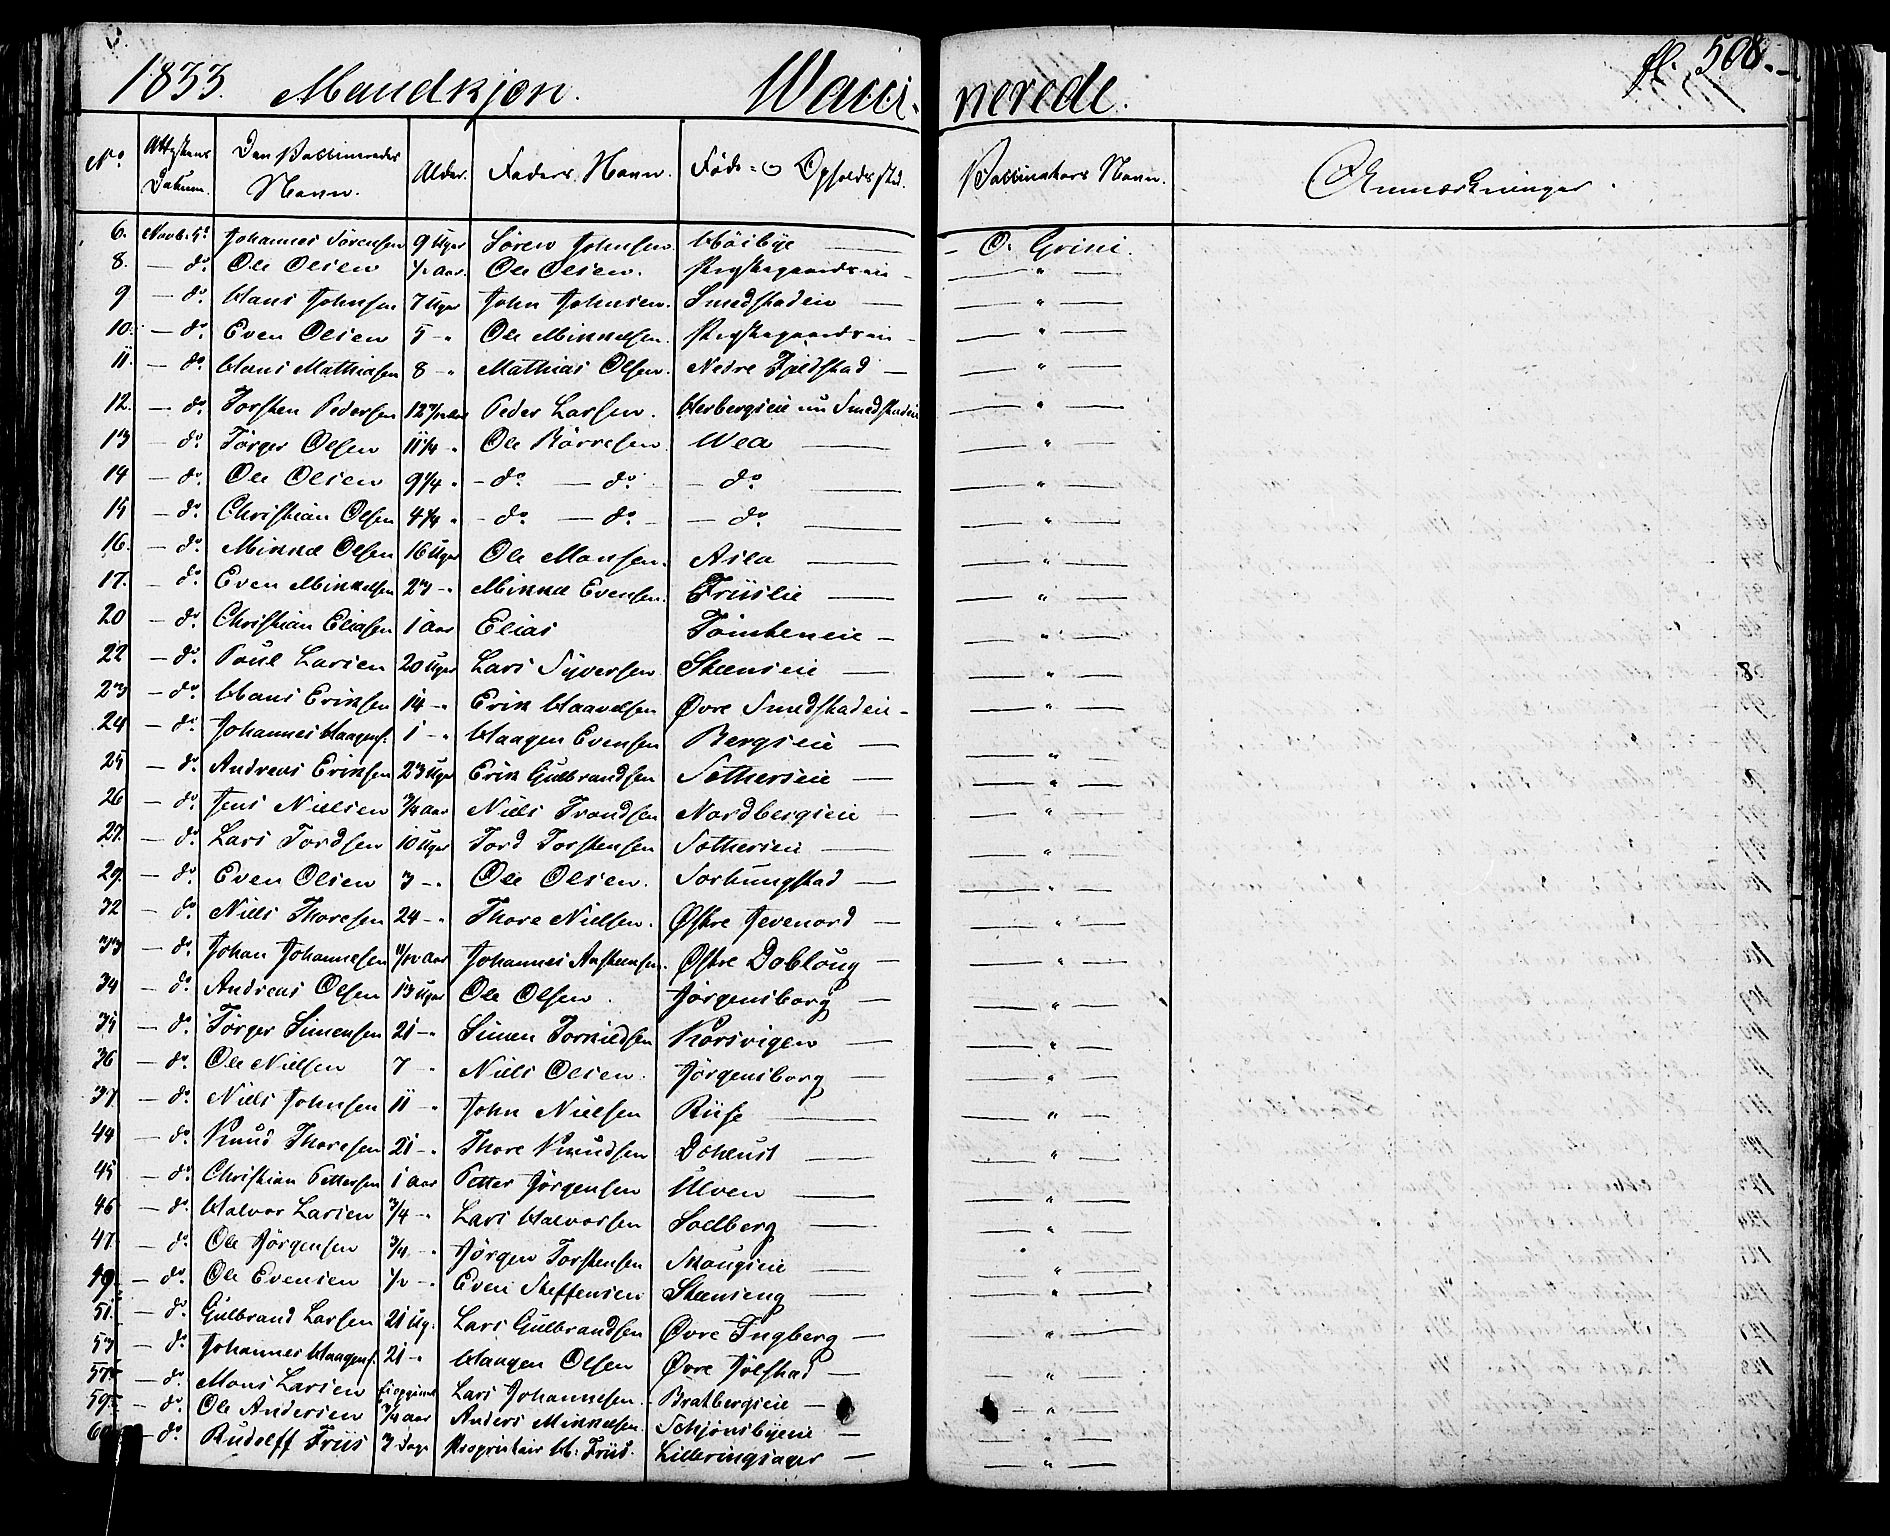 1833. Mandkjøn. Wacci- nerede. fl. 508.
No. Attestens Datum. Den Vaccineredes Navn. Alder. Faders Navn. Føde- og Opholdssted. Vaccinators Navn. Anmærkninger.
6. Novb. 5te Johannes Sørensen 9 Uger Søren Johnsen Høibye — O. Grini.
8. — do. Ole Olsen ½ Aar. Ole Olsen. Prestegaardseie — "
9 — do. Hans Johnsen 7 Uger John Johnsen. Smedstadeie — "
10. — do. Even Olsen 5 — " Ole Mikkelsen. Prestegaardseie — "
11. — do. Hans Mathiasen 8 — " Mathias Olsen. Nedre Fjeldstad — "
12. — do. Torsten Pedersen 12 Peder Larsen. Herbergseie nu Smedstadeie "
13 — do. Törger Olsen 11¼ " Ole Börresen Wea — "
14 — do. Ole Olsen 9¼ " — do. — do. — do. — "
15 — do. Christian Olsen 4¼ " — do. — do. — do. — "
16. — do. Mikkel Olsen 16 Uger Ole Monsen. Asla — "
17. — do. Even Mikkelsen 23 — " Mikkel Evensen. Friislie — "
20 — do. Christian Eliasen 1 Aar Elias Tömteneie — "
22 — do. Poul Larsen 20 Uger Lars Syversen Skeenseie — "
23 — do. Hans Eriksen 14 — " Erik Haavelsen Øvre Smedstadeie — "
24 — do. Johannes Haagens. 1 — " Haagen Evensen Bergseie — "
25 — do. Andreas Eriksen 23 Uger Erik Gulbrandsen Sethereie — "
26 — do. Jens Nielsen ¾ Aar Niels Trondsen Nordbergseie — "
27. — do. Lars Tordsen 10 Uger Tord Torstensen Sothereie — "
29. — do. Even Olsen 3 — " Ole Olsen. Sorkungstad — "
32 — do. Niels Thoresen 24 — " Thore Nielsen. Østre Jevenord — "
33 — do. Johan Johannesen 11/12 Aar Johannes Anstensen. Østre Dobloug — "
34 — do. Andreas Olsen 13 Uger Ole Olsen. Jörgensborg — "
35 — do. Törger Simensen 21 — " Simen Torkildsen Korsvigen — "
36 — do. Ole Nielsen 7 " Niels Olsen. Jörgensborg — "
37 — do. Niels Johnsen 11 — " John Nielsen Riise — "
44 — do. Knud Thoresen 21 — " Thore Knudsen —
45 — do. Christian Pettersen 1 Aar Petter Jörgensen Ulven — "
46 — do. Halvor Larsen ¾ — " Lars Halvorsen Solberg — "
47. — do. Ole Jörgensen ¾ — " Jörgen Torstensen Skougseie — "
49. — do. Ole Evensen ½ — " Even Steffensen Skeenseng — "
51. — do. Gulbrand Larsen 21 Ug. Lars Gulbrandsen Øvre Ingberg — "
53 — do. Johannes Haagens. 21 — " Haagen Olsen Øvre Jölstad — "
— do. Mons Larsen Lars Johannesen. Bratbergseie — "
59 — do. Ole Andersen ¾ Aar Anders Mikkelsen. Schjönsbyeie — "
— do. Rudolff Friis 3 Dage Proprietair H: Friis. Lilleringsager — "